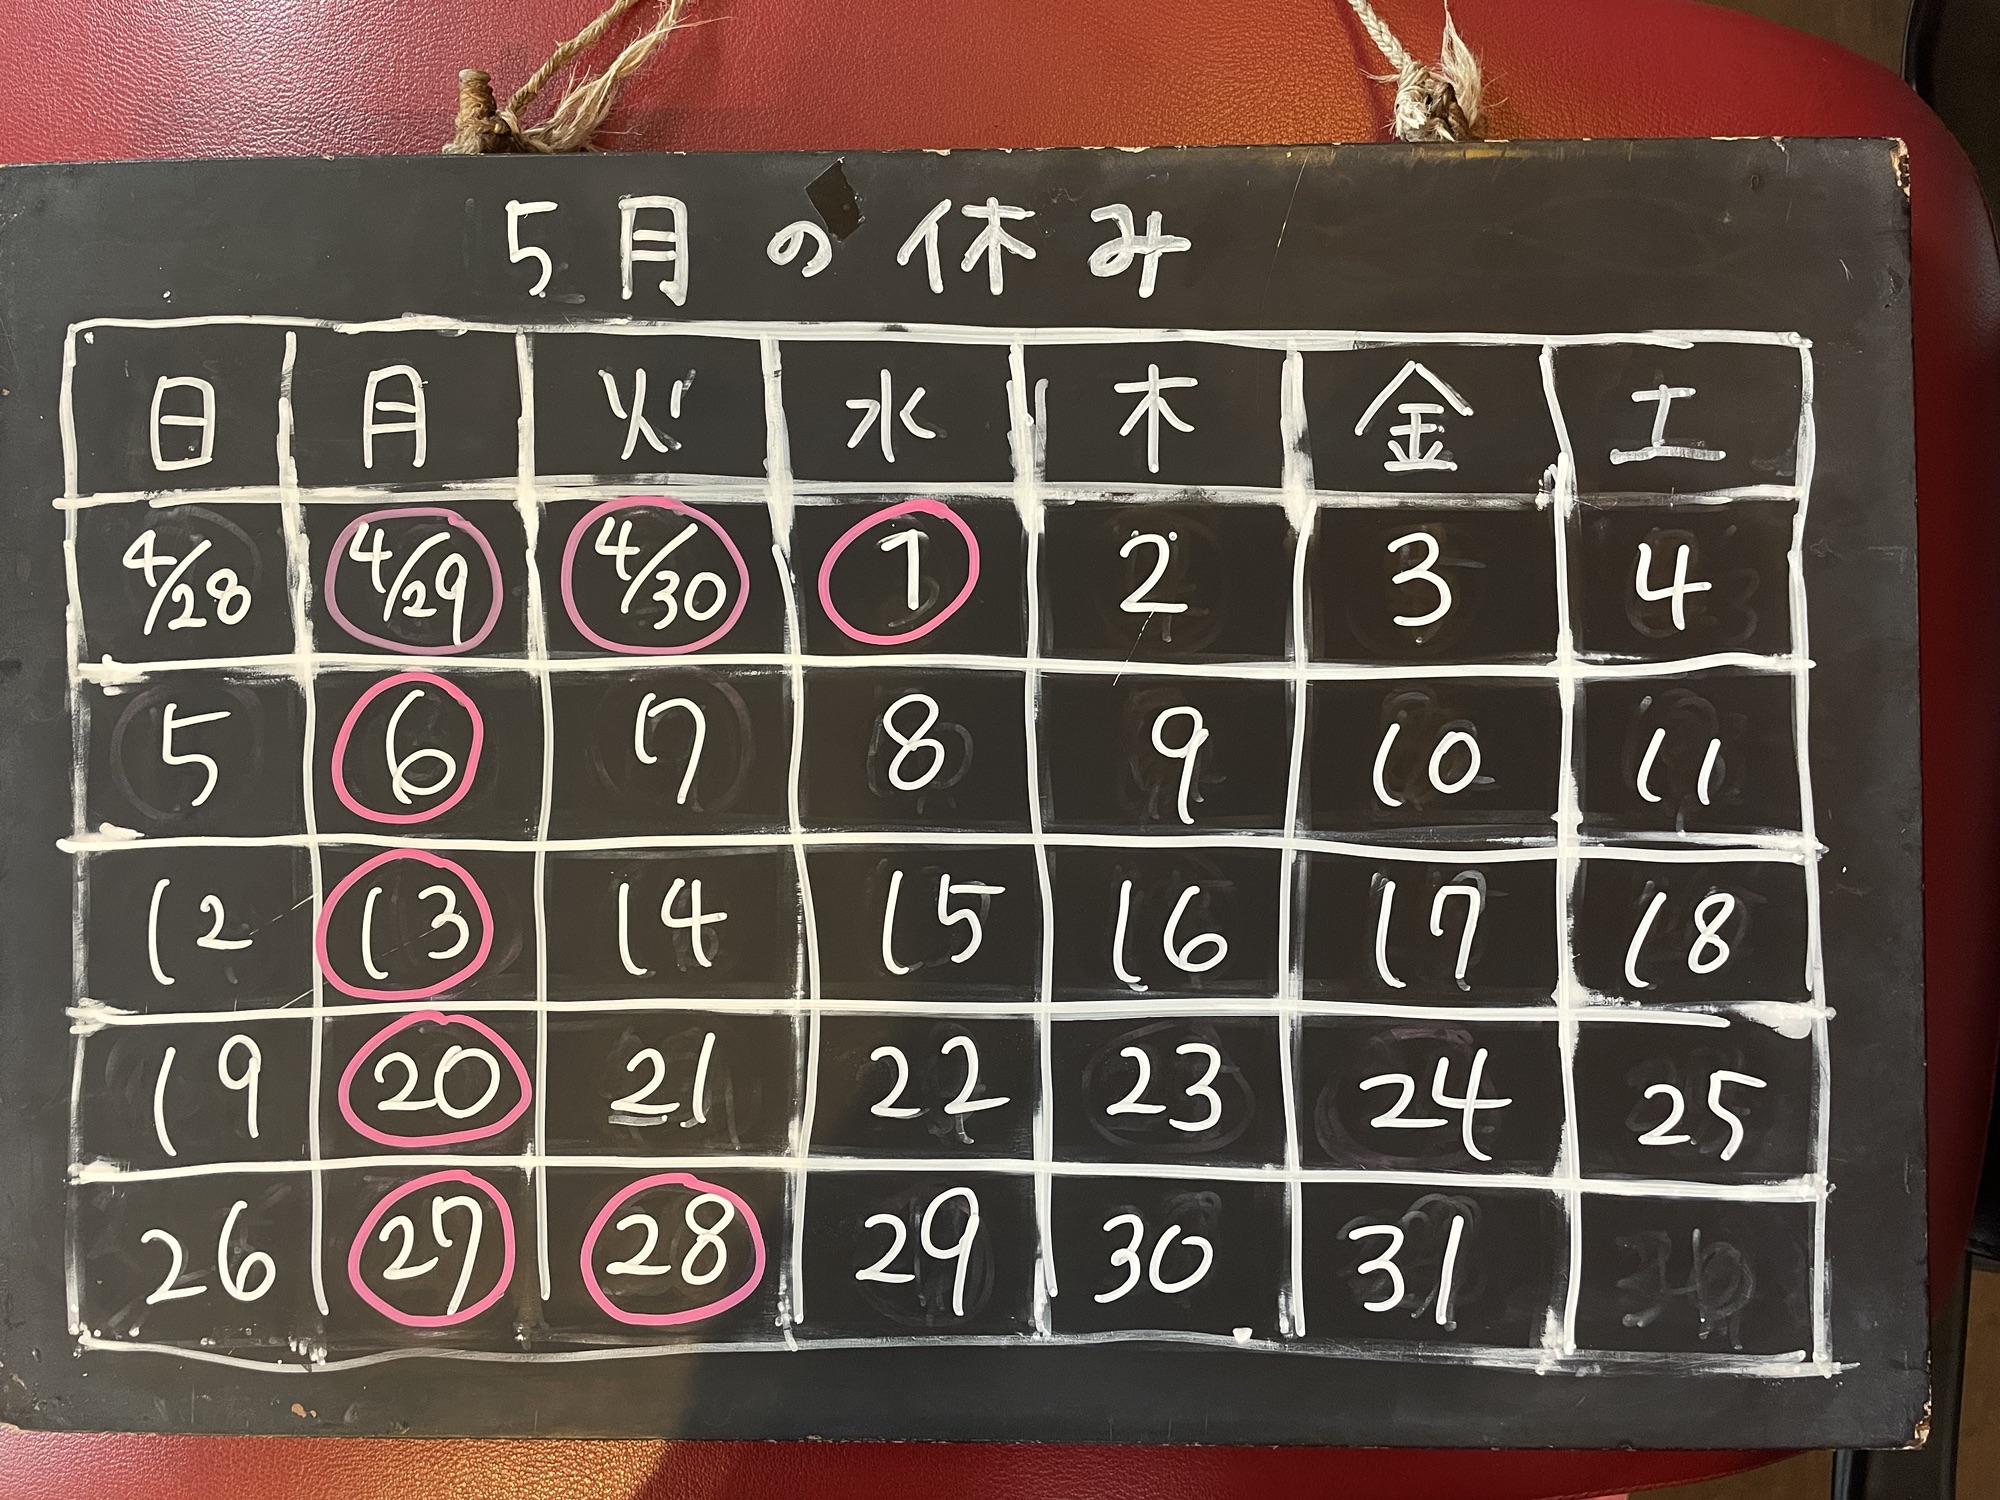 5月の休み
日 月 火 水 木 金 土
4/28 4/29 4/30 1 2 3 4
5 6 7 8 9 10 11
12 13 14 15 16 17 18
19 20 21 22 23 24 25
26 27 28 29 30 31